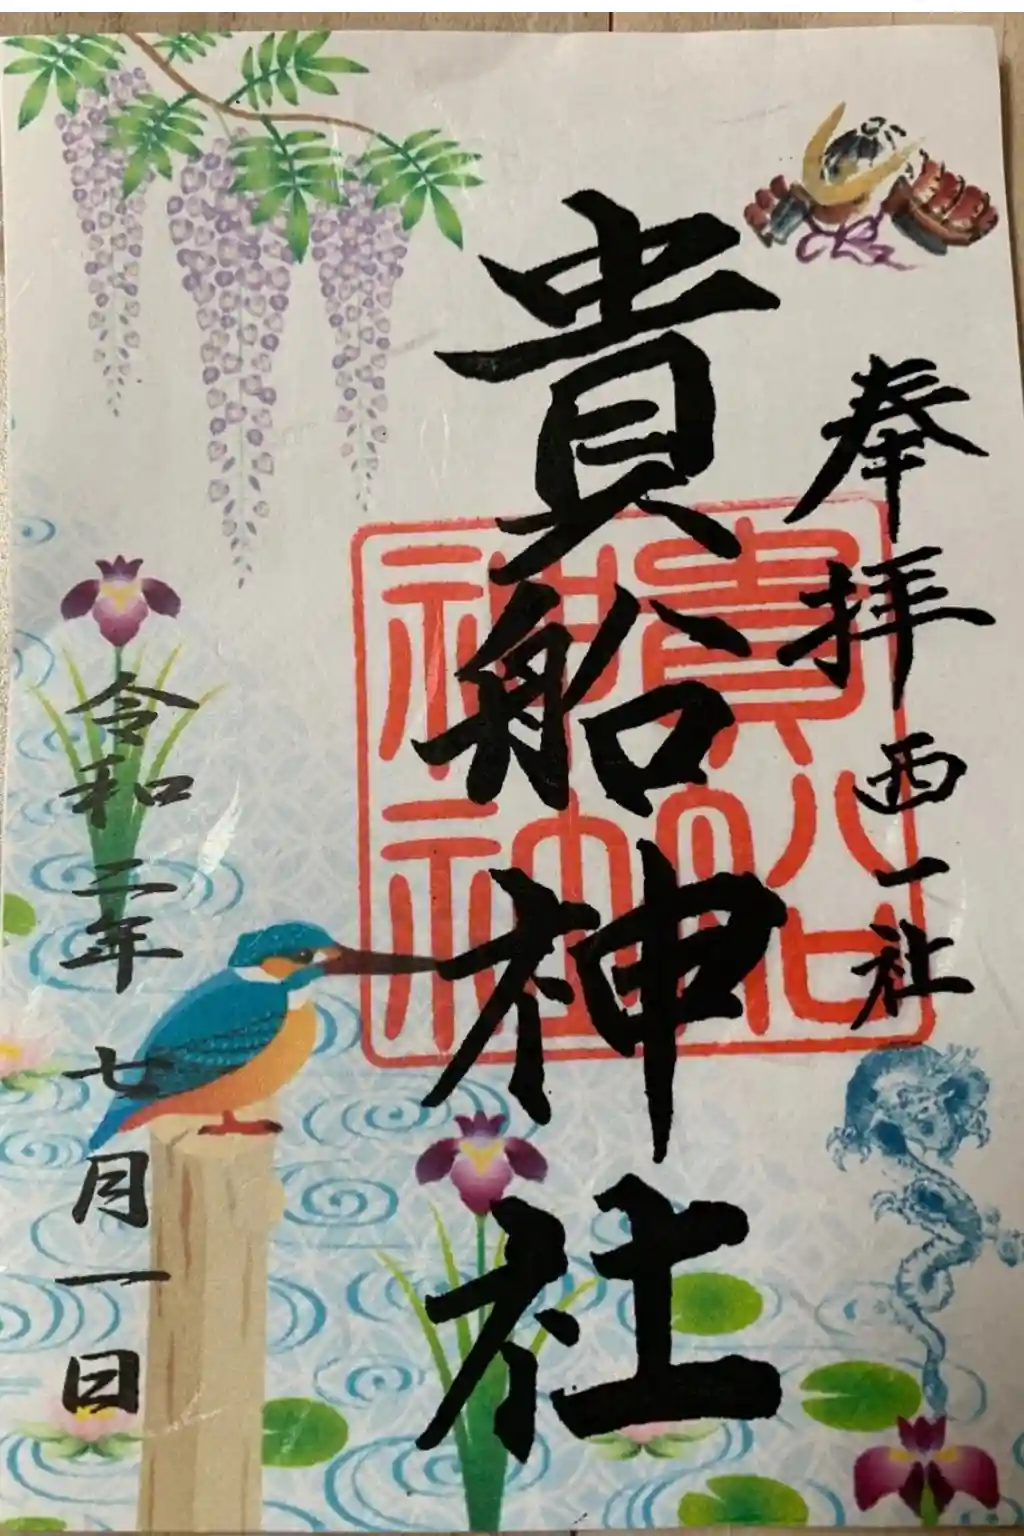 奉拝 西一社
貴船神社
貴船神社
令和二年七月一日